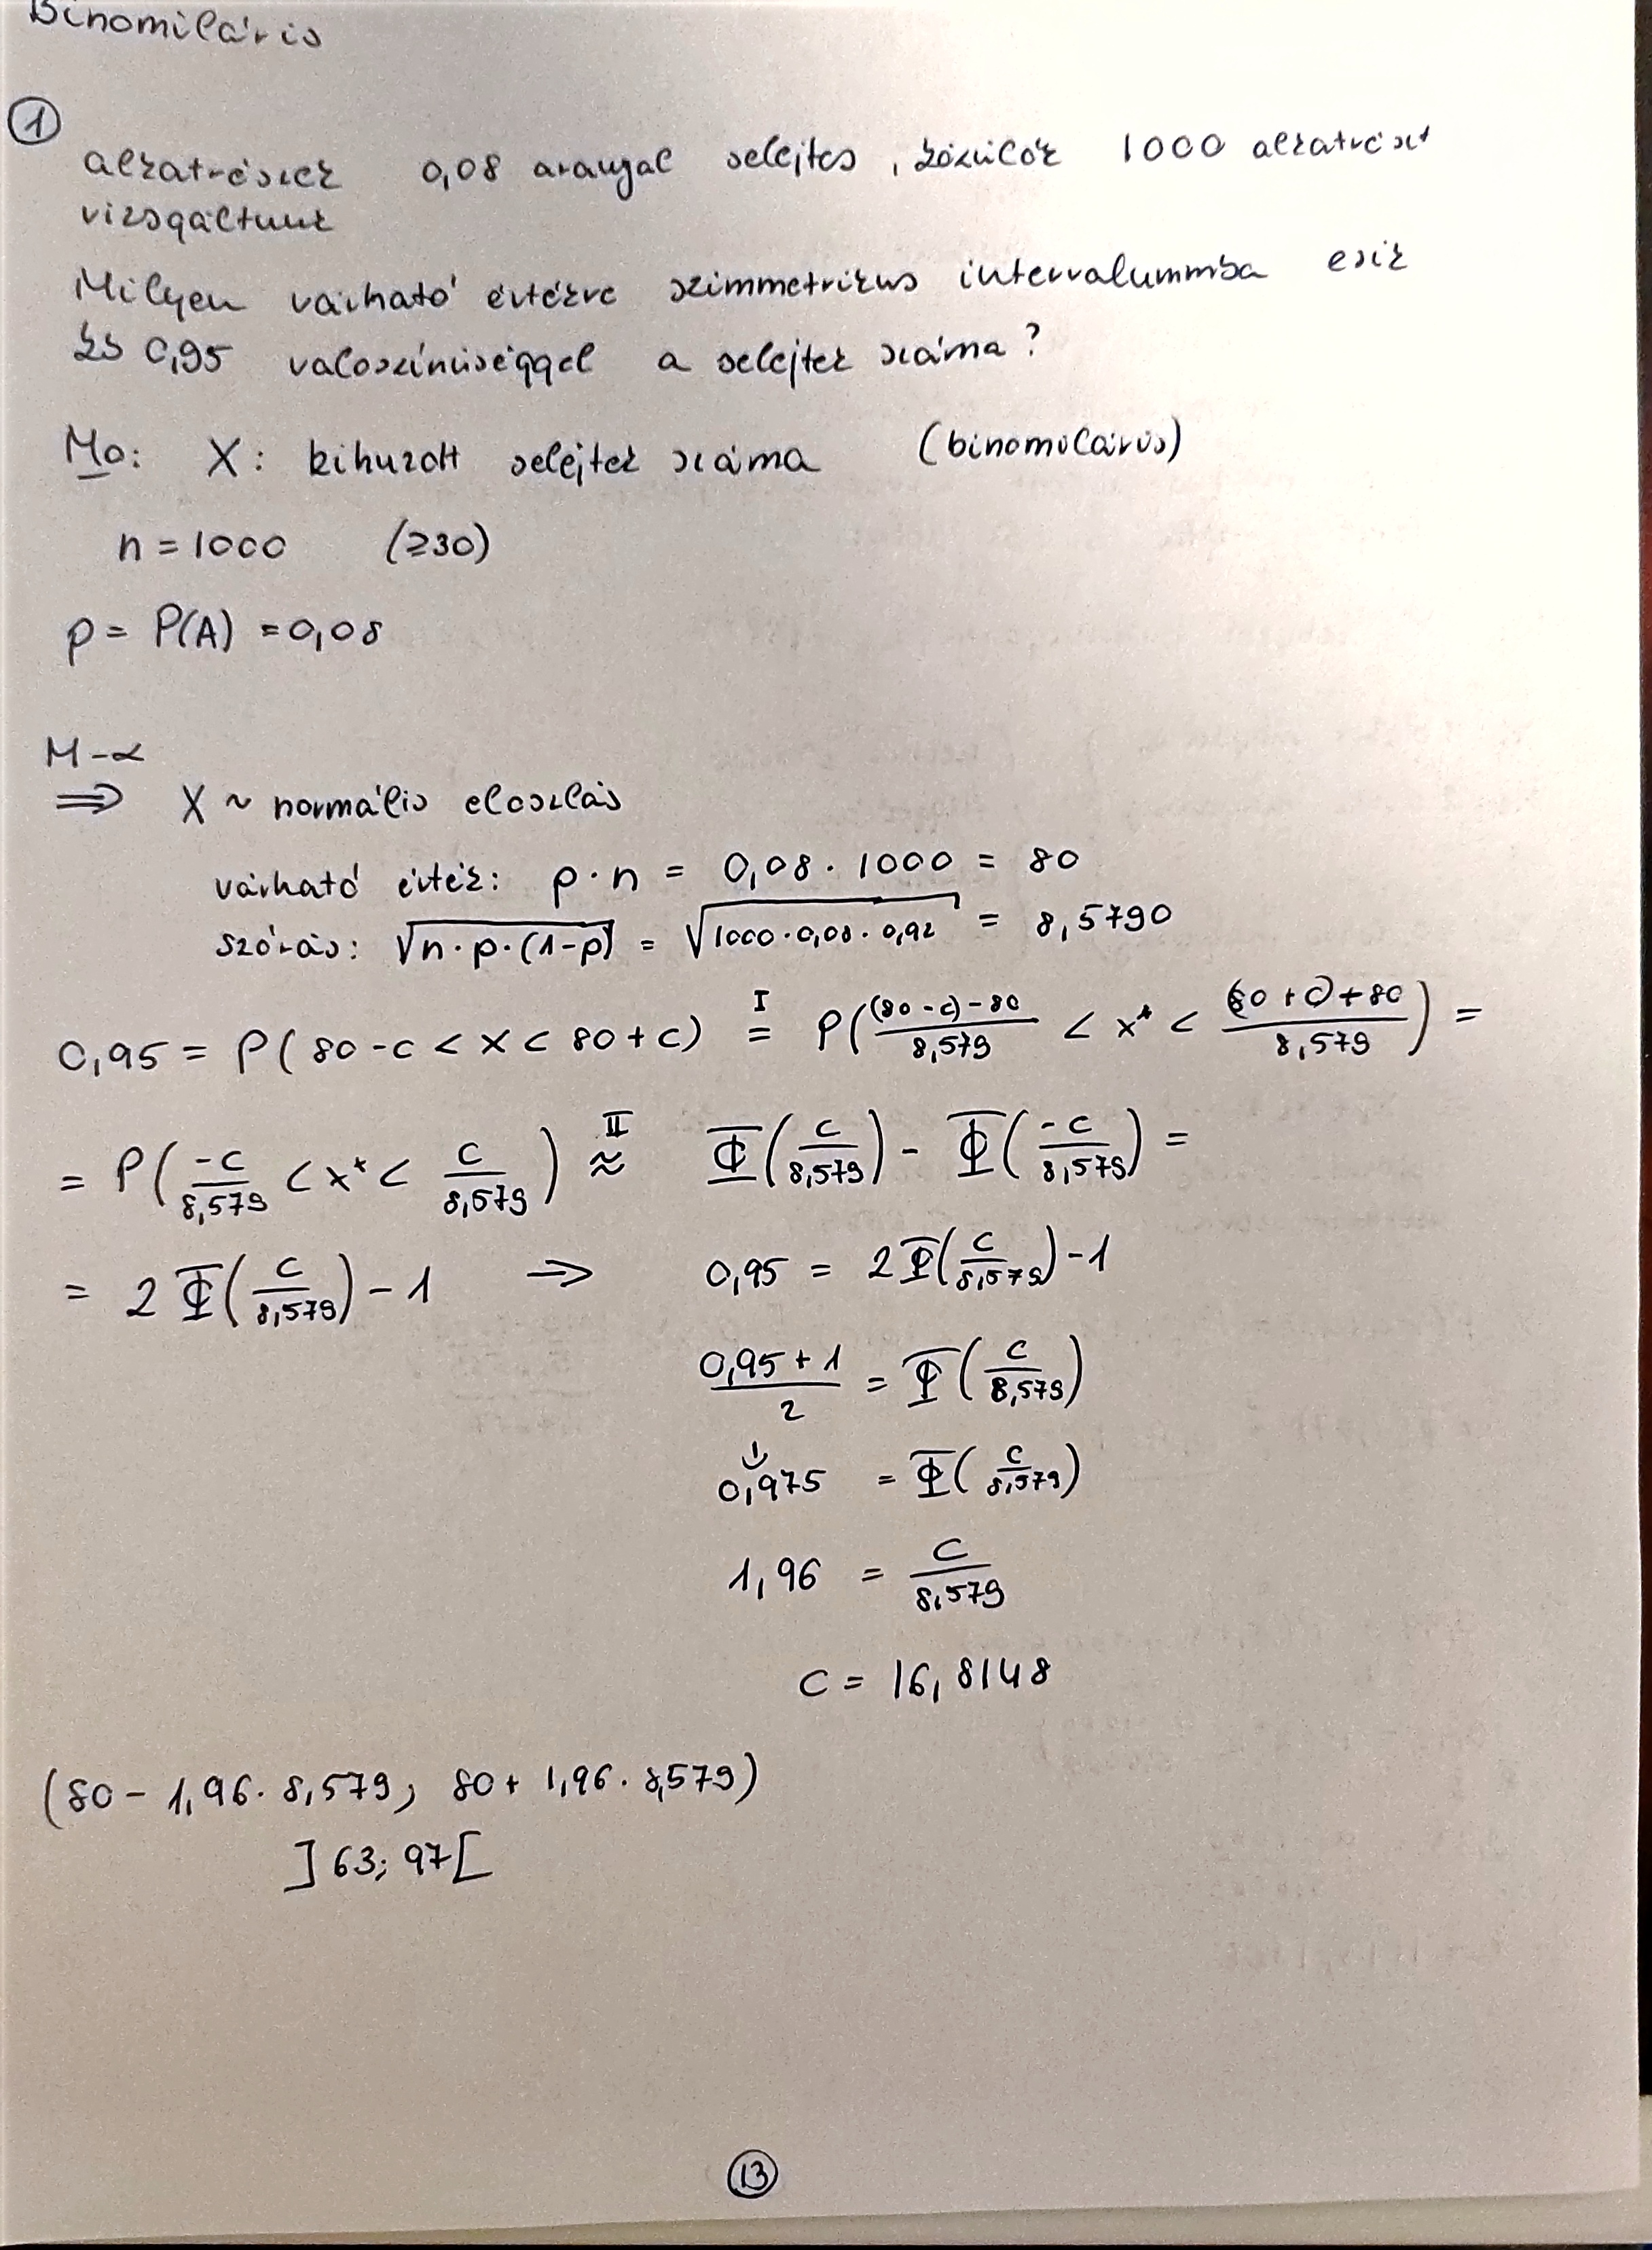 Binomiláris
1
alkatrészek 0,08 arányal selejtes, közülök 1000 alkatrészt
vizsgáltunk
Milyen várható értékre szimmetrikus intervalummba esik
kb 0,95 valoszínüséggel a selejtek száma?
Mo: X: kihuzott selejtek száma (binomiláris)
n = 1000 (≥30)
p = P(A) = 0,08
M-L
⇒ X ~ normális eloszlás
várható érték: p · n = 0,08 · 1000 = 80
szórás: √(n · p · (1-p)) = √(1000 · 0,08 · 0,92) = 8,5790
0,95 = P(80 - c < X < 80 + c) =^I P(((80 - c) - 80)/8,579 < x* < ((80 + c) + 80)/8,579) =
= P(-c/8,579 < x* < c/8,579) ≈^II Φ(c/8,579) - Φ(-c/8,579) =
= 2 Φ(c/8,579) - 1 ⇒ 0,95 = 2 Φ(c/8,579) - 1
(0,95 + 1)/2 = Φ(c/8,579)
0,975 = Φ(c/8,579)
1,96 = c/8,579
c = 16,8148
(80 - 1,96 · 8,579; 80 + 1,96 · 8,579)
]63; 97[
13